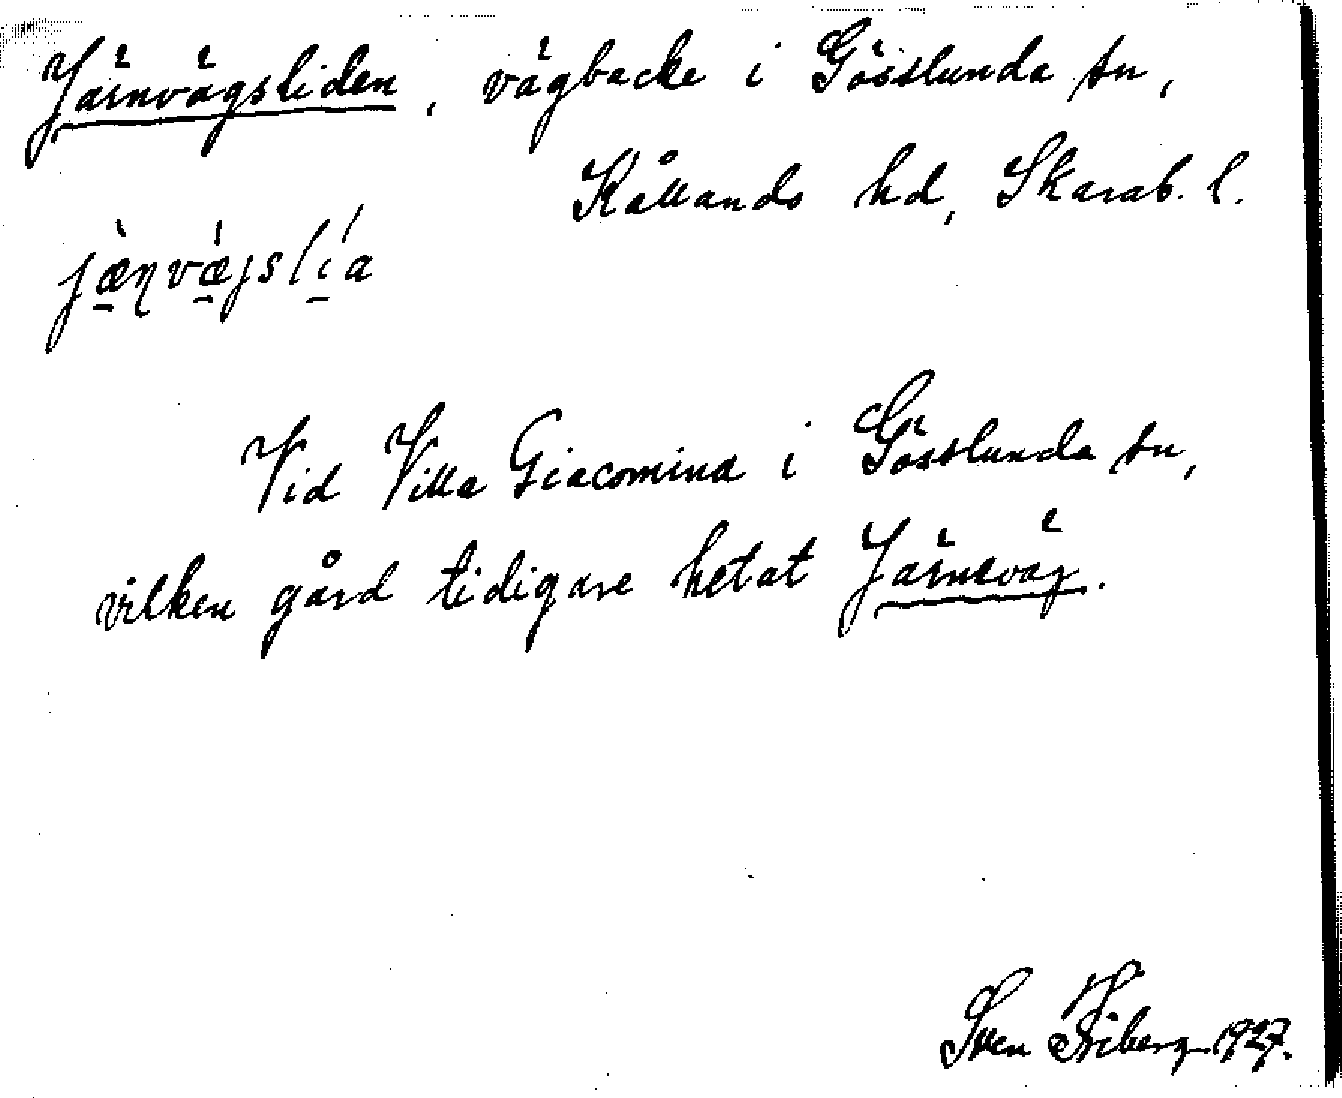 Järnvägsliden, vägbacke i Gösslunda sn,
Kållands hd, Skarab. l.
jæ̀ɳvǽgslía
Vid Villa Giacomina i Gösslunda sn,
vilken gård tidigare hetat Järnsväg.
Sven Friberg 1927.